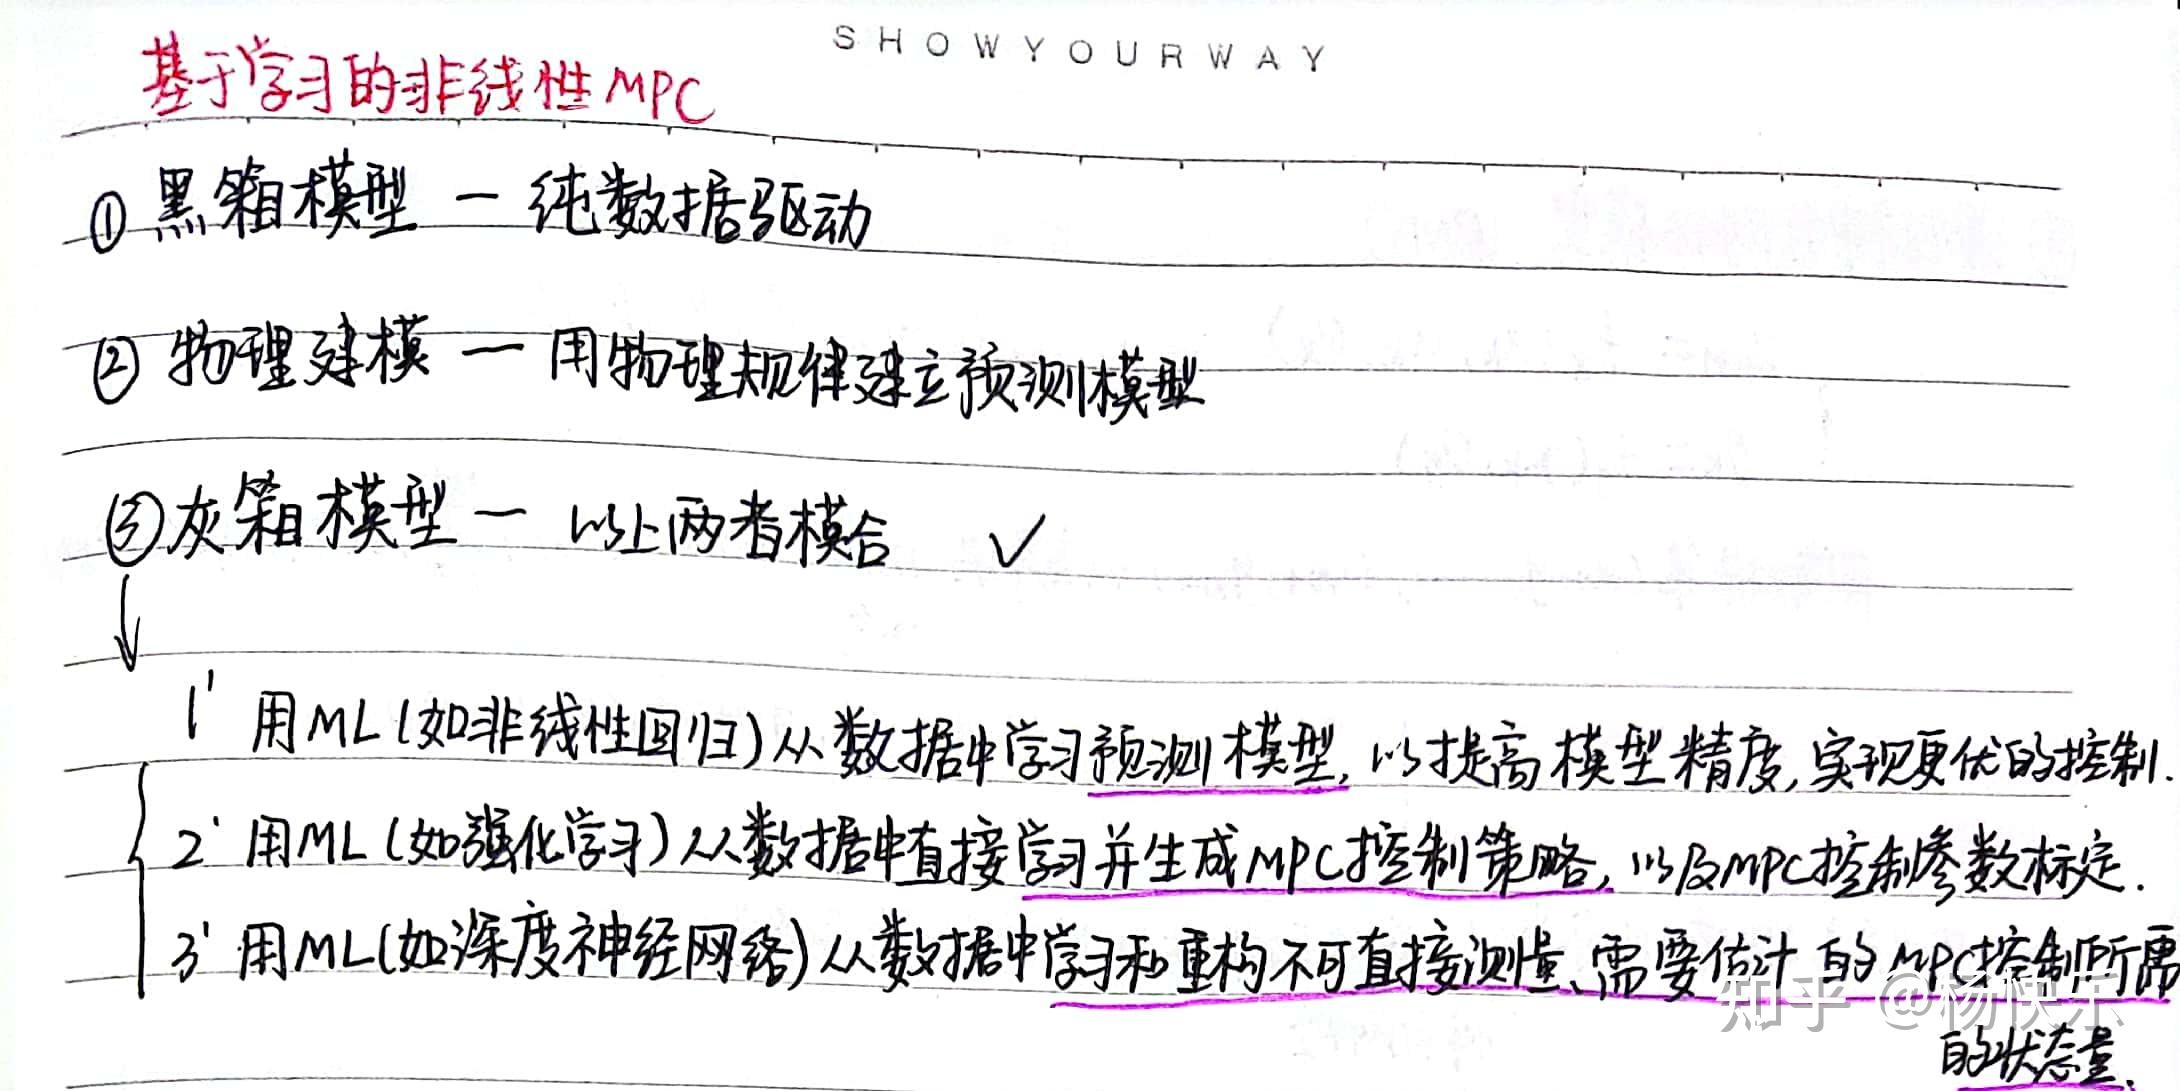 SHOWYOURWAY
基于学习的非线性MPC
① 黑箱模型 — 纯数据驱动
② 物理建模 — 用物理规律建立预测模型
③ 灰箱模型 — 以上两者模合 ✓
↓
1' 用ML(如非线性回归)从数据中学习预测模型,以提高模型精度,实现更优的控制.
2' 用ML(如强化学习)从数据中直接学习并生成MPC控制策略,以及MPC控制参数标定.
3' 用ML(如深度神经网络)从数据中学习和重构不可直接测量、需要估计的MPC控制所需
的状态量.
知乎 @杨快乐